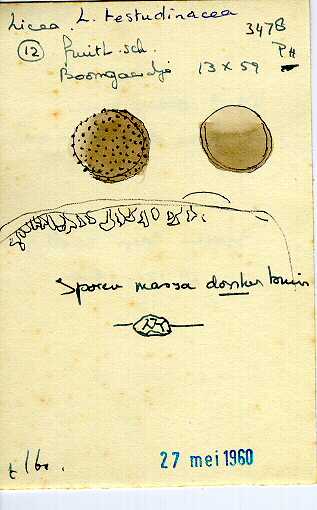 Licea. L. testudinacea
3478
12 fruitt. sch.
PH
Boomgaardje 13 x 59
Sporen massa donker bruin
t/60.
27 mei 1960